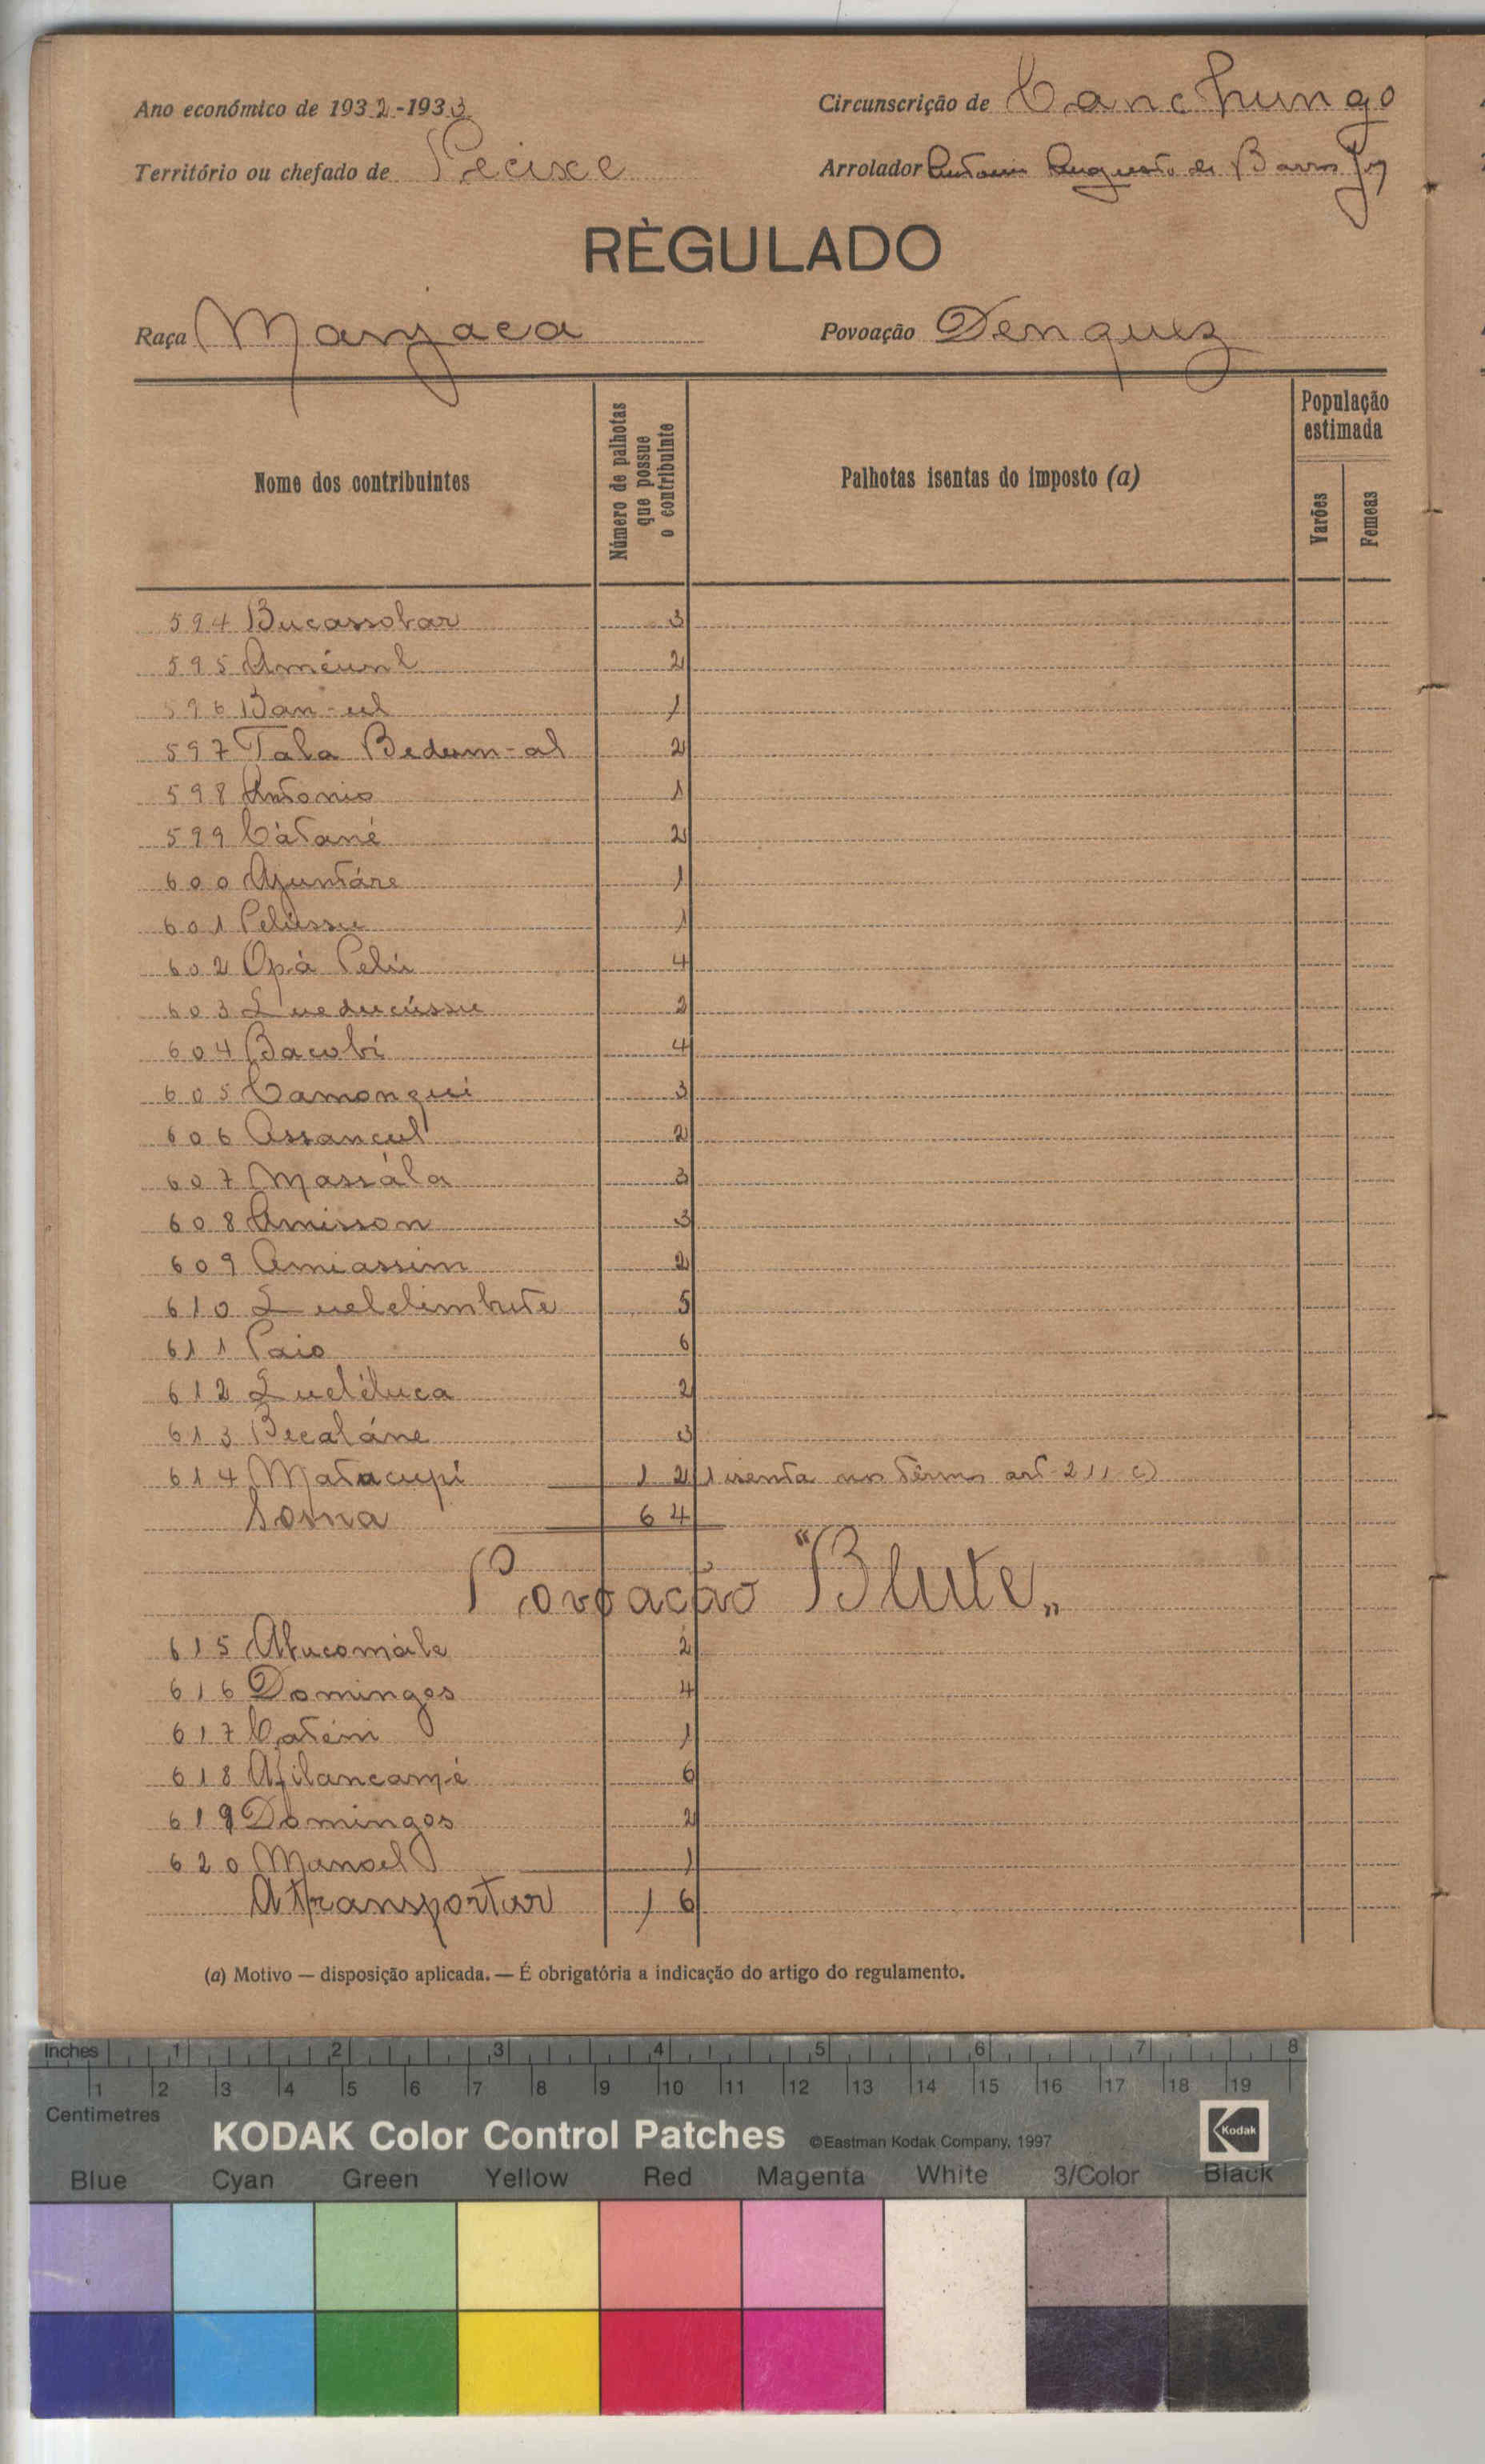 Ano económico de 1932-1933
Circunscrição de Canchungo
Território ou chefado de Pecixe
Arrolador Antonio Augusto de Barros Jor
RÈGULADO
Raça Manjaca
Povoação Denguez
Nome dos contribuintes
Número de palhotas que possue o contribuinte
Palhotas isentas do imposto (a)
População estimada
Varões
Femeas
594 Bucassobar 3
595 Améunl 2
596 Ban-ul 1
597 Taba Bedum-al 2
598 Antonio 1
599 Càtané 2
600 Ajuntáre 1
601 Pelússu 1
602 Opà Pelú 4
603 Queducússu 2
604 Bacobi 4
605 Camongui 3
606 Assancul 2
607 Massála 3
608 Amisson 3
609 Amiassim 2
610 Quelelimbute 5
611 Paio 6
612 Queléluca 2
613 Becaláne 3
614 Matacupi 12 1 isenta nos têrmos art- 2 11 c)
Soma 64
Povoação "Blute„
615 Abucomàle 2
616 Domingos 4
617 Catém 1
618 Afilancamé 6
619 Domingos 2
620 Manoel 1
A transportar 16
(a) Motivo — disposição aplicada. — É obrigatória a indicação do artigo do regulamento.
Inches 1 2 3 4 5 6 7 8
1 2 3 4 5 6 7 8 9 10 11 12 13 14 15 16 17 18 19
Centimetres
KODAK Color Control Patches ©Eastman Kodak Company, 1997 Kodak
Blue Cyan Green Yellow Red Magenta White 3/Color Black